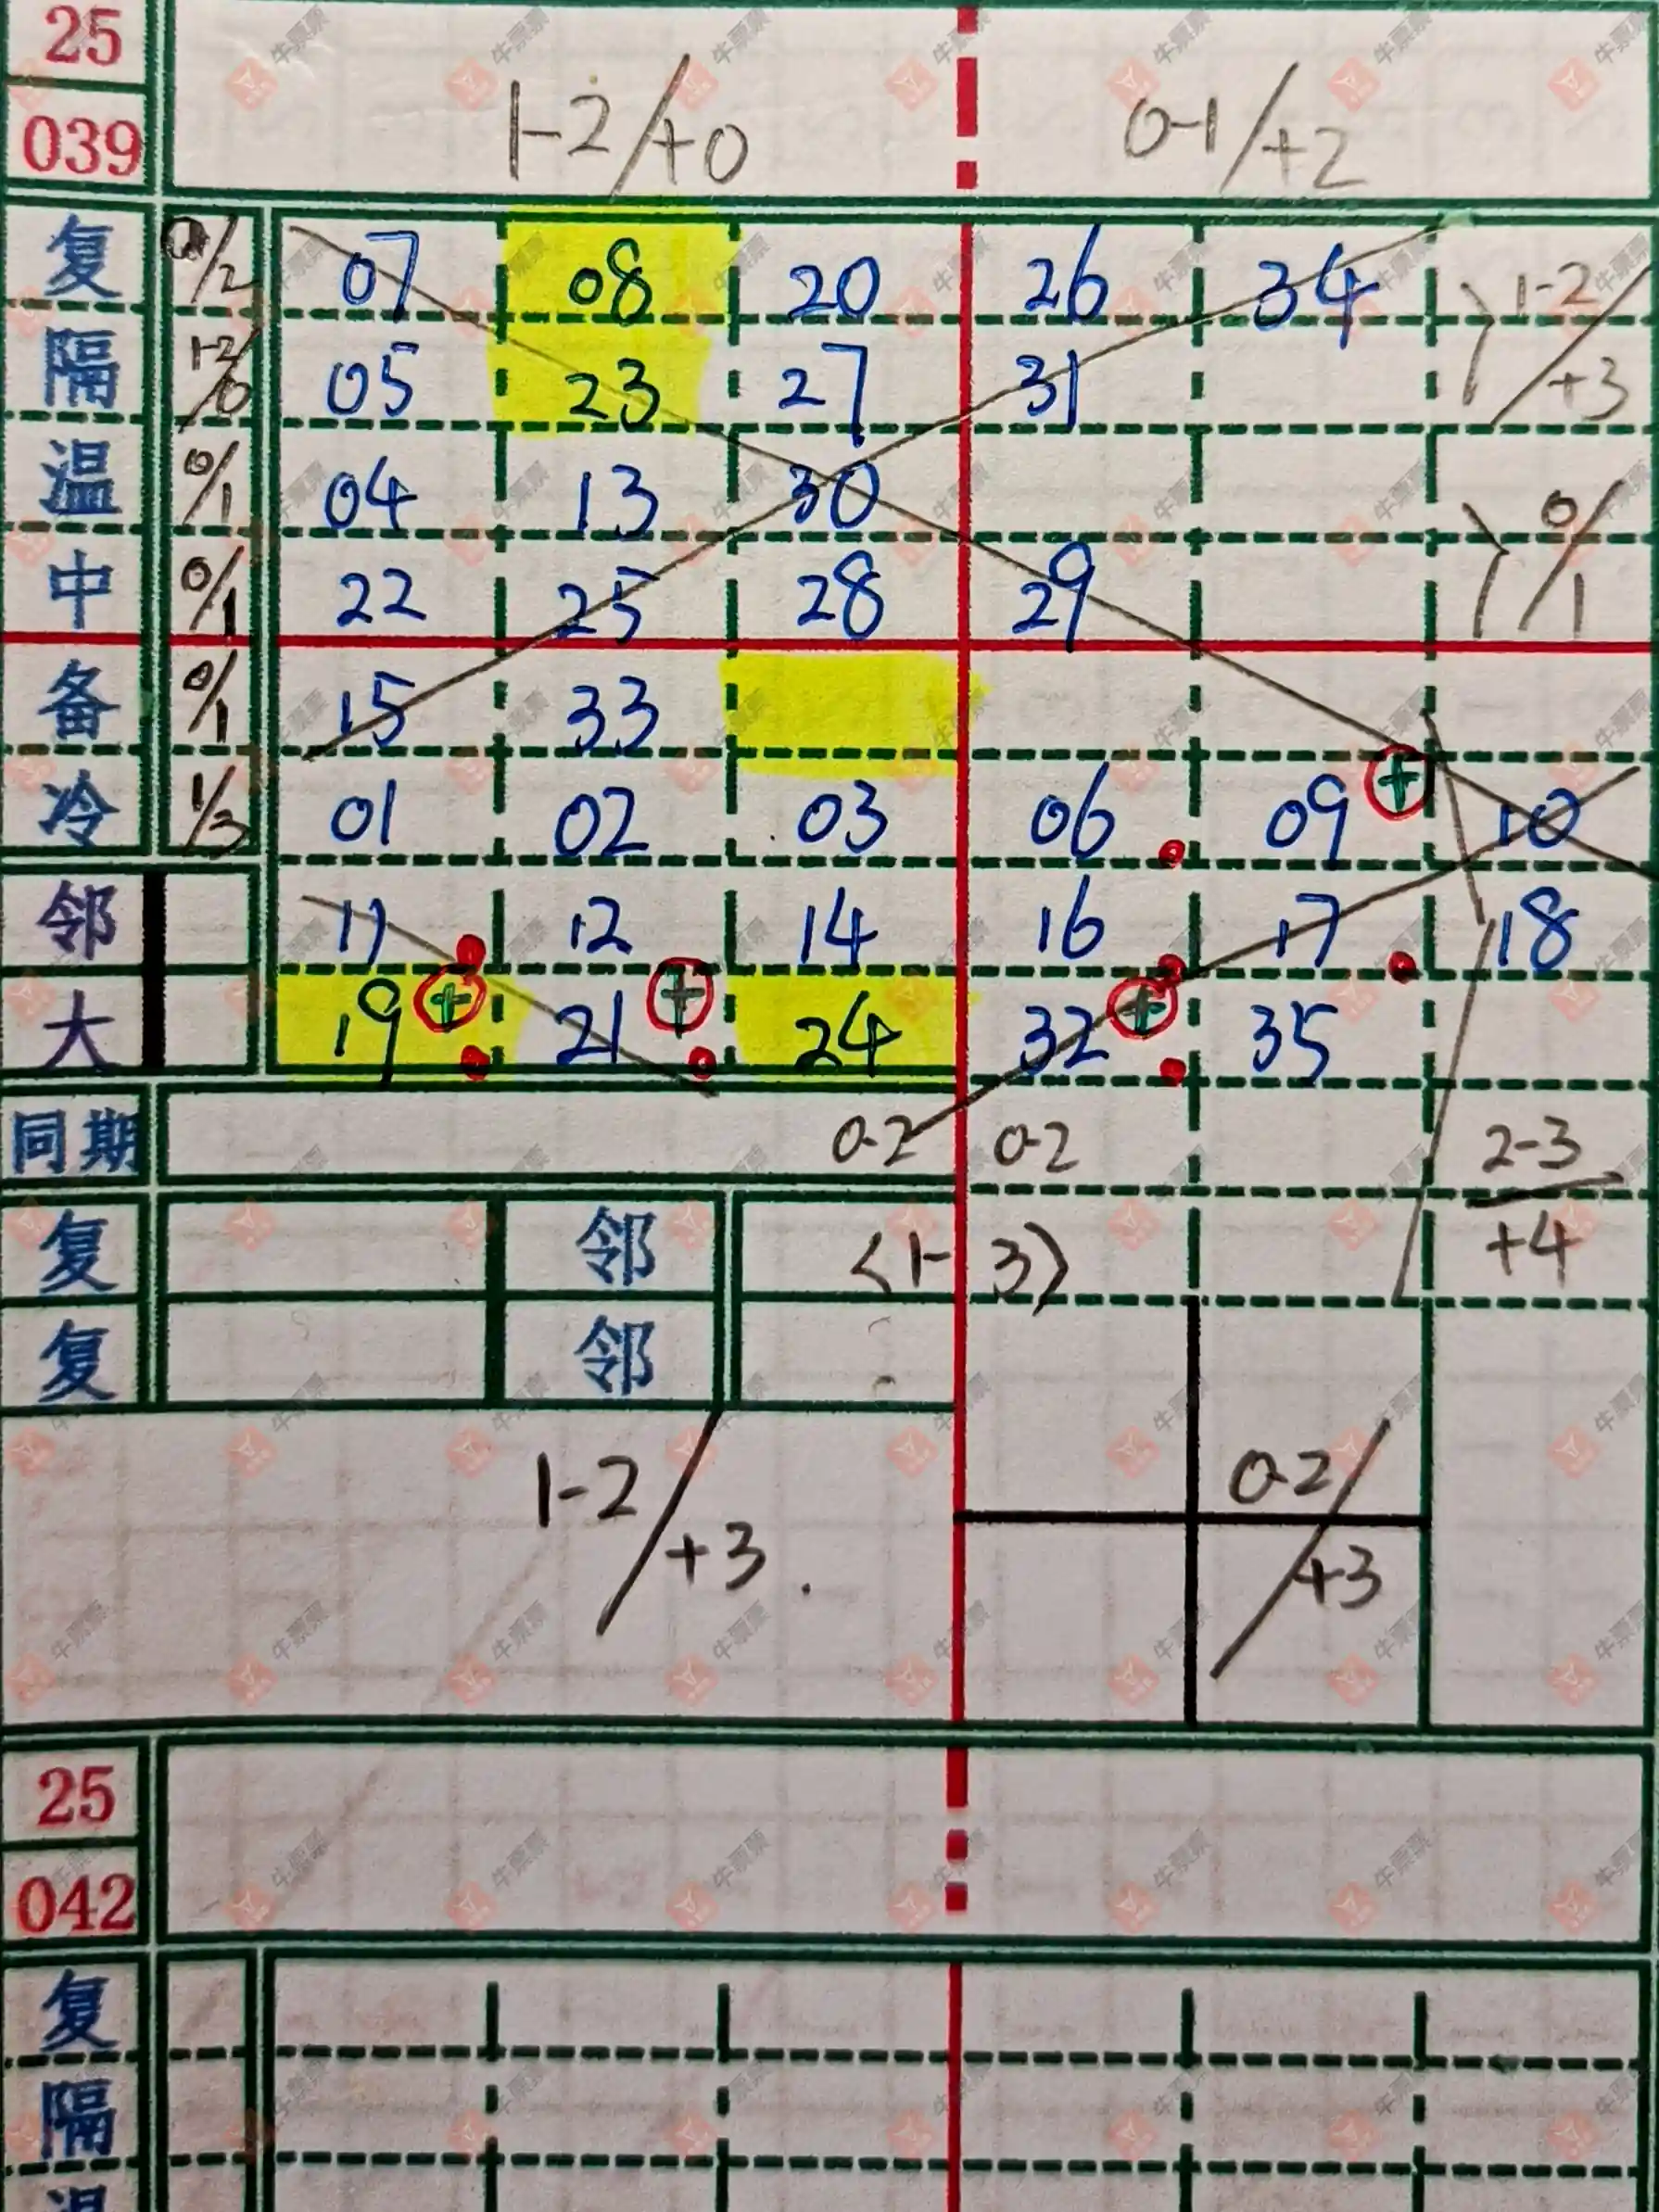 25
039
1-2/+0 0-1/+2
复 0/2 07 08 20 26 34 1-2/+3
隔 1-2/0 05 23 27 31
温 0/1 04 13 30 0/1
中 0/1 22 25 28 29
备 0/1 15 33
冷 1/3 01 02 03 06 09 + 10
邻 11 12 14 16 17 18
大 19 + 21 + 24 32 + 35
同期 0-2 0-2 2-3
+4
复 邻 <1-3>
复 邻
1-2/+3 0-2/+3
25
042
复
隔
温
牛票票